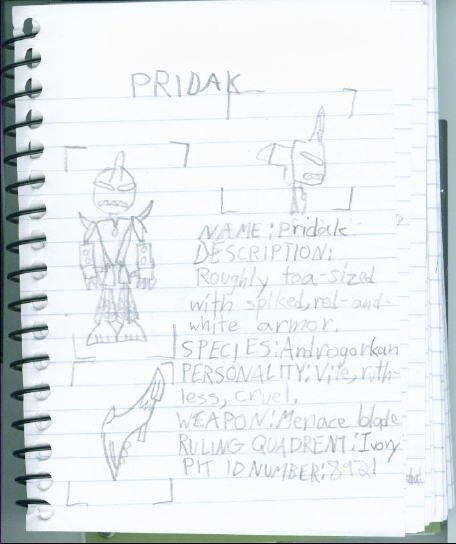 PRIDAK
NAME: Pridak
DESCRIPTION:
Roughly toa-sized
with spiked, red-and-
white armor.
SPECIES: Androgorkan
PERSONALITY: Vile, ruth-
less, cruel.
WEAPON: Menace blade
RULING QUADRENT: Ivory
PIT ID NUMBER: 8921